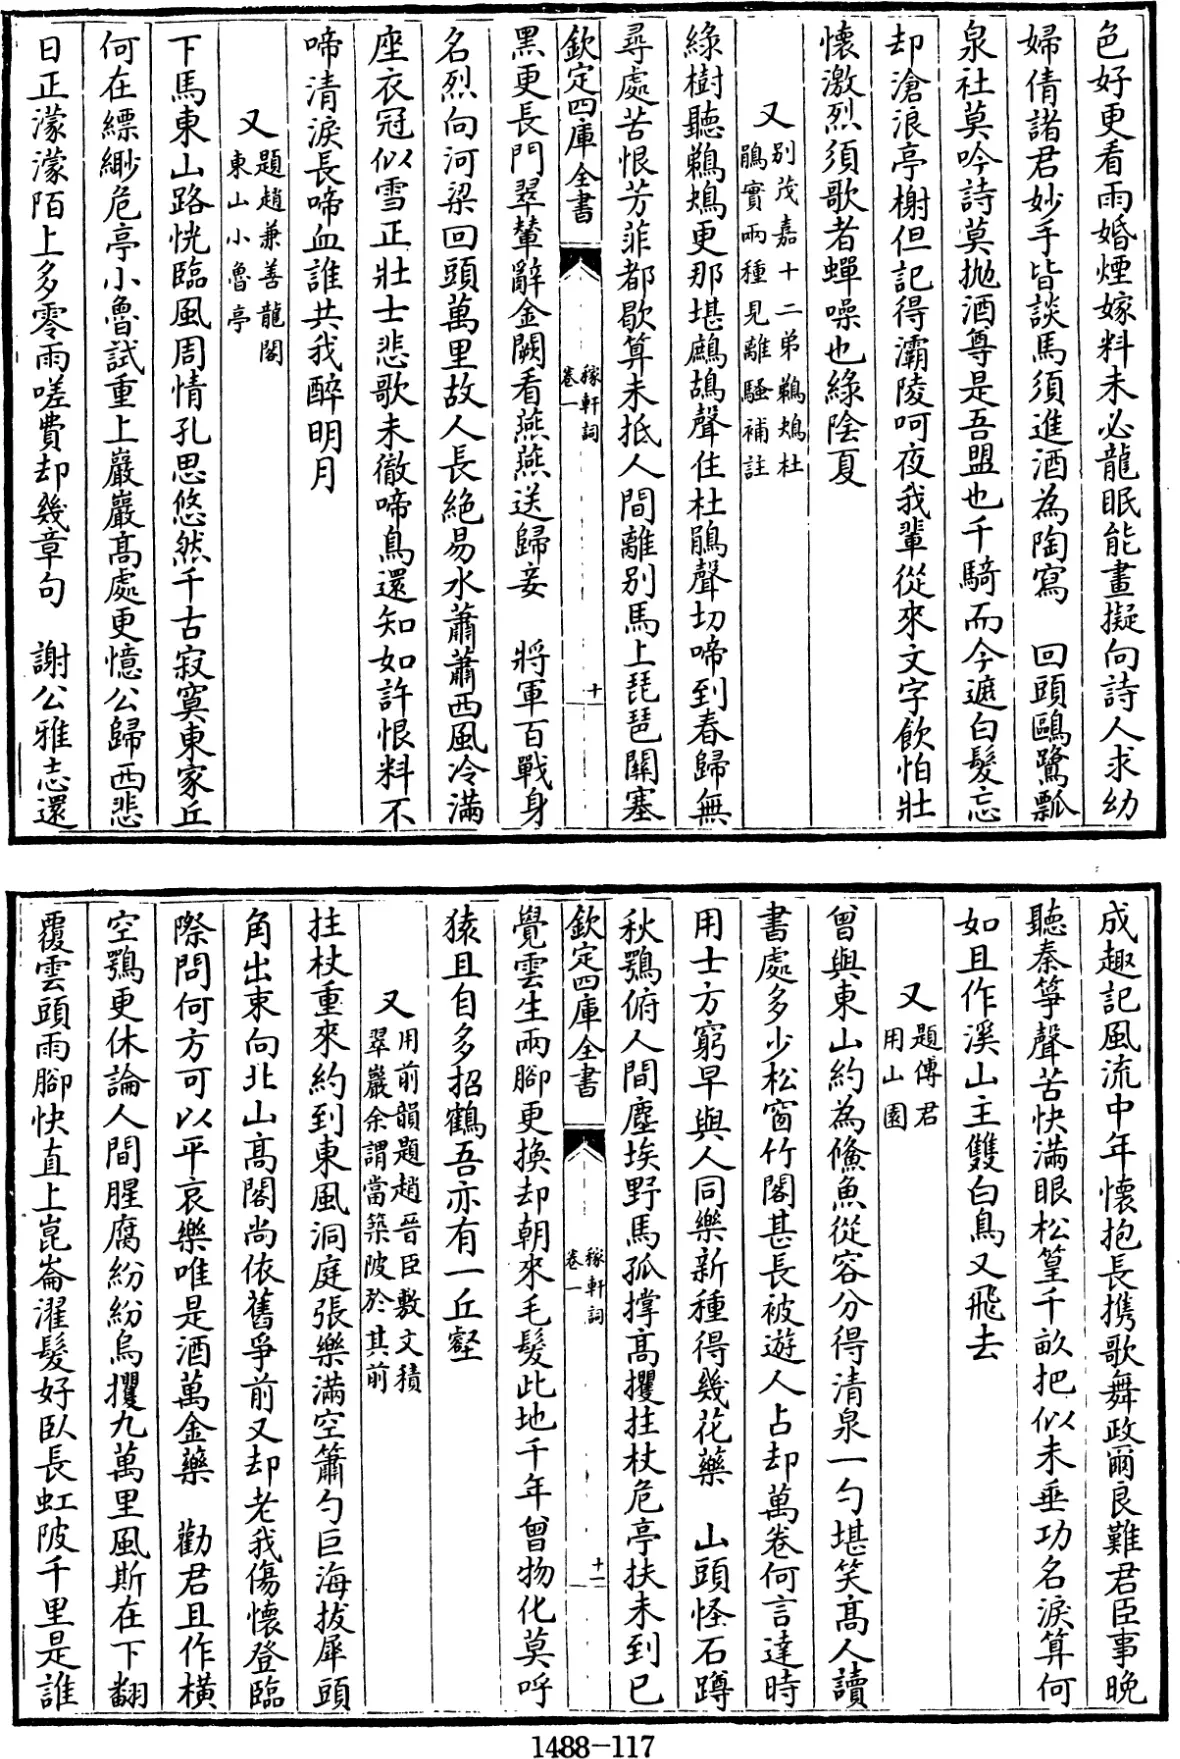 色好更看雨婚煙嫁料未必龍眠能畫擬向詩人求幼
婦倩諸君妙手皆談馬須進酒為陶寫　回頭鷗鷺瓢
泉社莫吟詩莫抛酒尊是吾盟也千騎而今遮白髮忘
却滄浪亭榭但記得灞陵呵夜我輩從來文字飲怕壯
懷激烈須歌者蟬噪也綠陰夏
又
別茂嘉十二弟鵜鴂杜
鵑實兩種見離騷補註
綠樹聽鵜鴂更那堪鷓鴣聲住杜鵑聲切啼到春歸無
尋處苦恨芳菲都歇算未抵人間離別馬上琵琶關塞
欽定四庫全書
稼軒詞
卷一
十
黑更長門翠輦辭金闕看燕燕送歸妾　將軍百戰身
名烈向河梁回頭萬里故人長絕易水蕭蕭西風冷滿
座衣冠似雪正壯士悲歌未徹啼鳥還知如許恨料不
啼清淚長啼血誰共我醉明月
又
題趙兼善龍閣
東山小魯亭
下馬東山路恍臨風周情孔思悠然千古寂寞東家丘
何在縹緲危亭小魯試重上巖巖高處更憶公歸西悲
日正濛濛陌上多零雨嗟費却幾章句　謝公雅志還
成趣記風流中年懷抱長携歌舞政爾良難君臣事晚
聽秦箏聲苦快滿眼松篁千畝把似未垂功名淚算何
如且作溪山主雙白鳥又飛去
又
題傅君
用山園
曾與東山約為鯈魚從容分得清泉一勺堪笑高人讀
書處多少松窗竹閣甚長被遊人占却萬卷何言達時
用士方窮早與人同樂新種得幾花藥　山頭怪石蹲
秋鶚俯人間塵埃野馬孤撑高攫拄杖危亭扶未到已
欽定四庫全書
稼軒詞
卷一
十一
覺雲生兩腳更換却朝來毛髮此地千年曾物化莫呼
猿且自多招鶴吾亦有一丘壑
又
用前韻題趙晉臣敷文積
翠巖余謂當築陂於其前
拄杖重來約到東風洞庭張樂滿空簫勺巨海拔犀頭
角出東向北山高閣尚依舊爭前又却老我傷懷登臨
際問何方可以平哀樂唯是酒萬金藥　勸君且作橫
空鶚更休論人間腥腐紛紛烏攫九萬里風斯在下翻
覆雲頭雨腳快直上崑崙濯髮好臥長虹陂千里是誰
1488-117